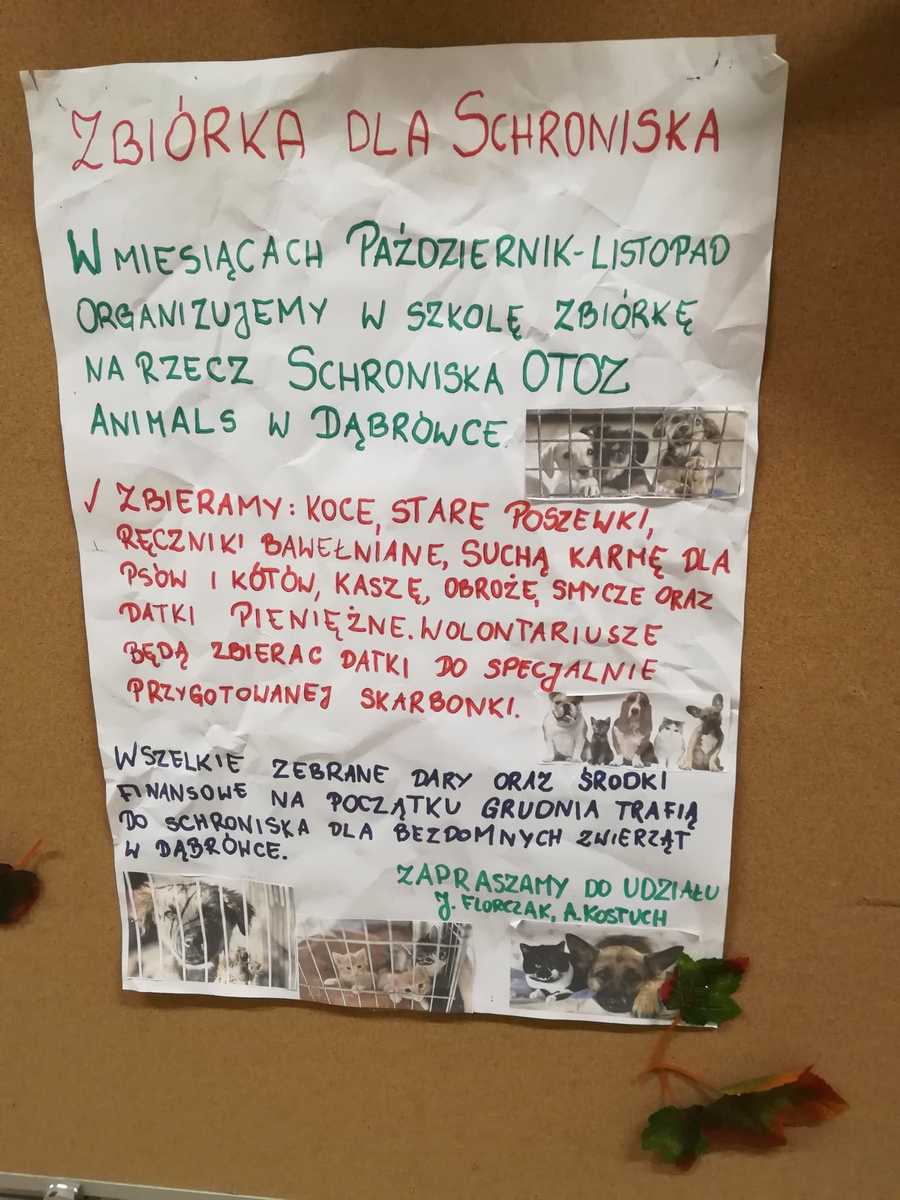 ZBIÓRKA DLA SCHRONISKA
W MIESIĄCACH PAŹDZIERNIK-LISTOPAD
ORGANIZUJEMY W SZKOLĘ ZBIÓRKĘ
NA RZECZ SCHRONISKA OTOZ
ANIMALS W DĄBRÓWCE.
√ ZBIERAMY: KOCE, STARE POSZEWKI,
RĘCZNIKI BAWEŁNIANE, SUCHĄ KARMĘ DLA
PSÓW I KÓTÓW, KASZĘ, OBROŻE, SMYCZE ORAZ
DATKI PIENIĘŻNE. WOLONTARIUSZE
BĘDĄ ZBIERAC DATKI DO SPECJALNIE
PRZYGOTOWANEJ SKARBONKI.
WSZELKIE ZEBRANE DARY ORAZ ŚRODKI
FINANSOWE NA POCZĄTKU GRUDNIA TRAFIĄ
DO SCHRONISKA DLA BEZDOMNYCH ZWIERZĄT
W DĄBRÓWCE.
ZAPRASZAMY DO UDZIAŁU
J. FLORCZAK, A. KOSTUCH